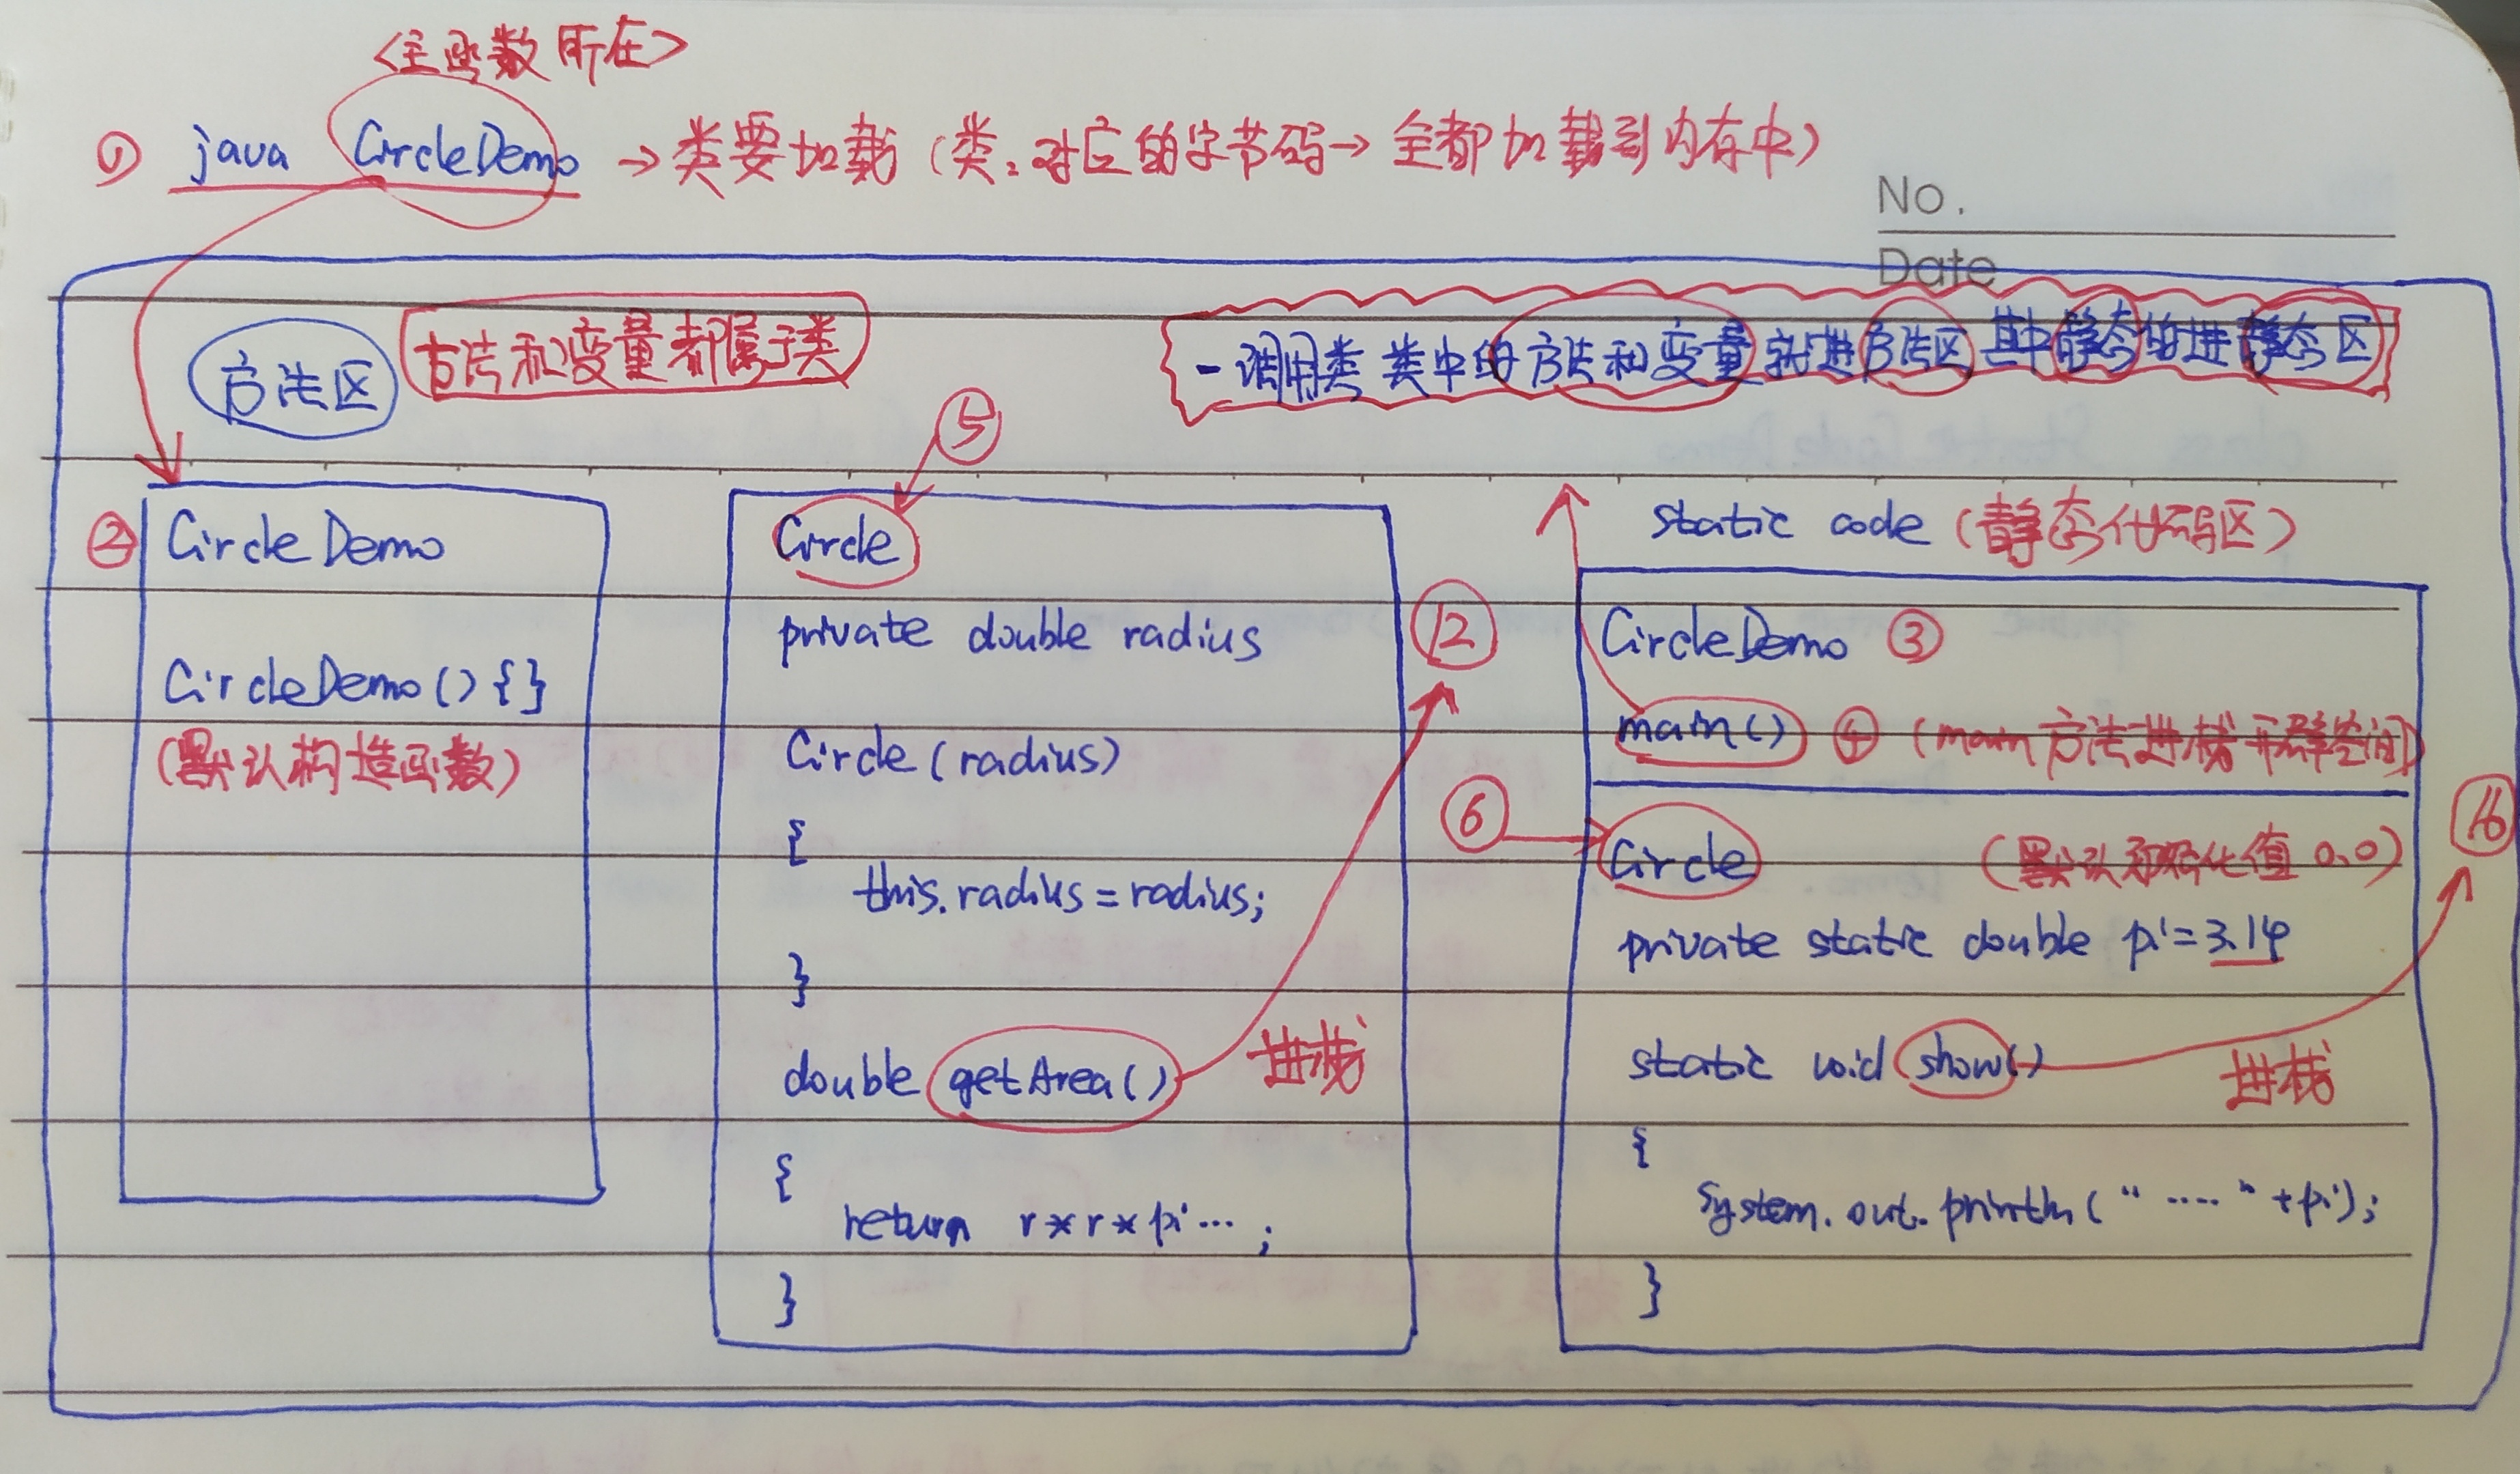 <主函数所在>
① java CircleDemo → 类要加载 (类:对应的字节码→ 全都加载到内存中)
No.
Date
方法区
方法和变量都属于类
一调用类 类中的方法和变量就进方法区 其中静态的进静态区
⑤
② CircleDemo
CircleDemo() {}
(默认构造函数)
Circle
private double radius
Circle (radius)
{
this.radius = radius;
}
double getArea() 进栈
⑫
{
return r*r*pi··· ;
}
static code (静态代码区)
CircleDemo ③
main() ④ (main 方法进栈 开辟空间)
⑥ Circle (默认初始化值 0.0)
⑯
private static double pi = 3.14
static void show() 进栈
{
System.out.println( " ···· " + pi);
}